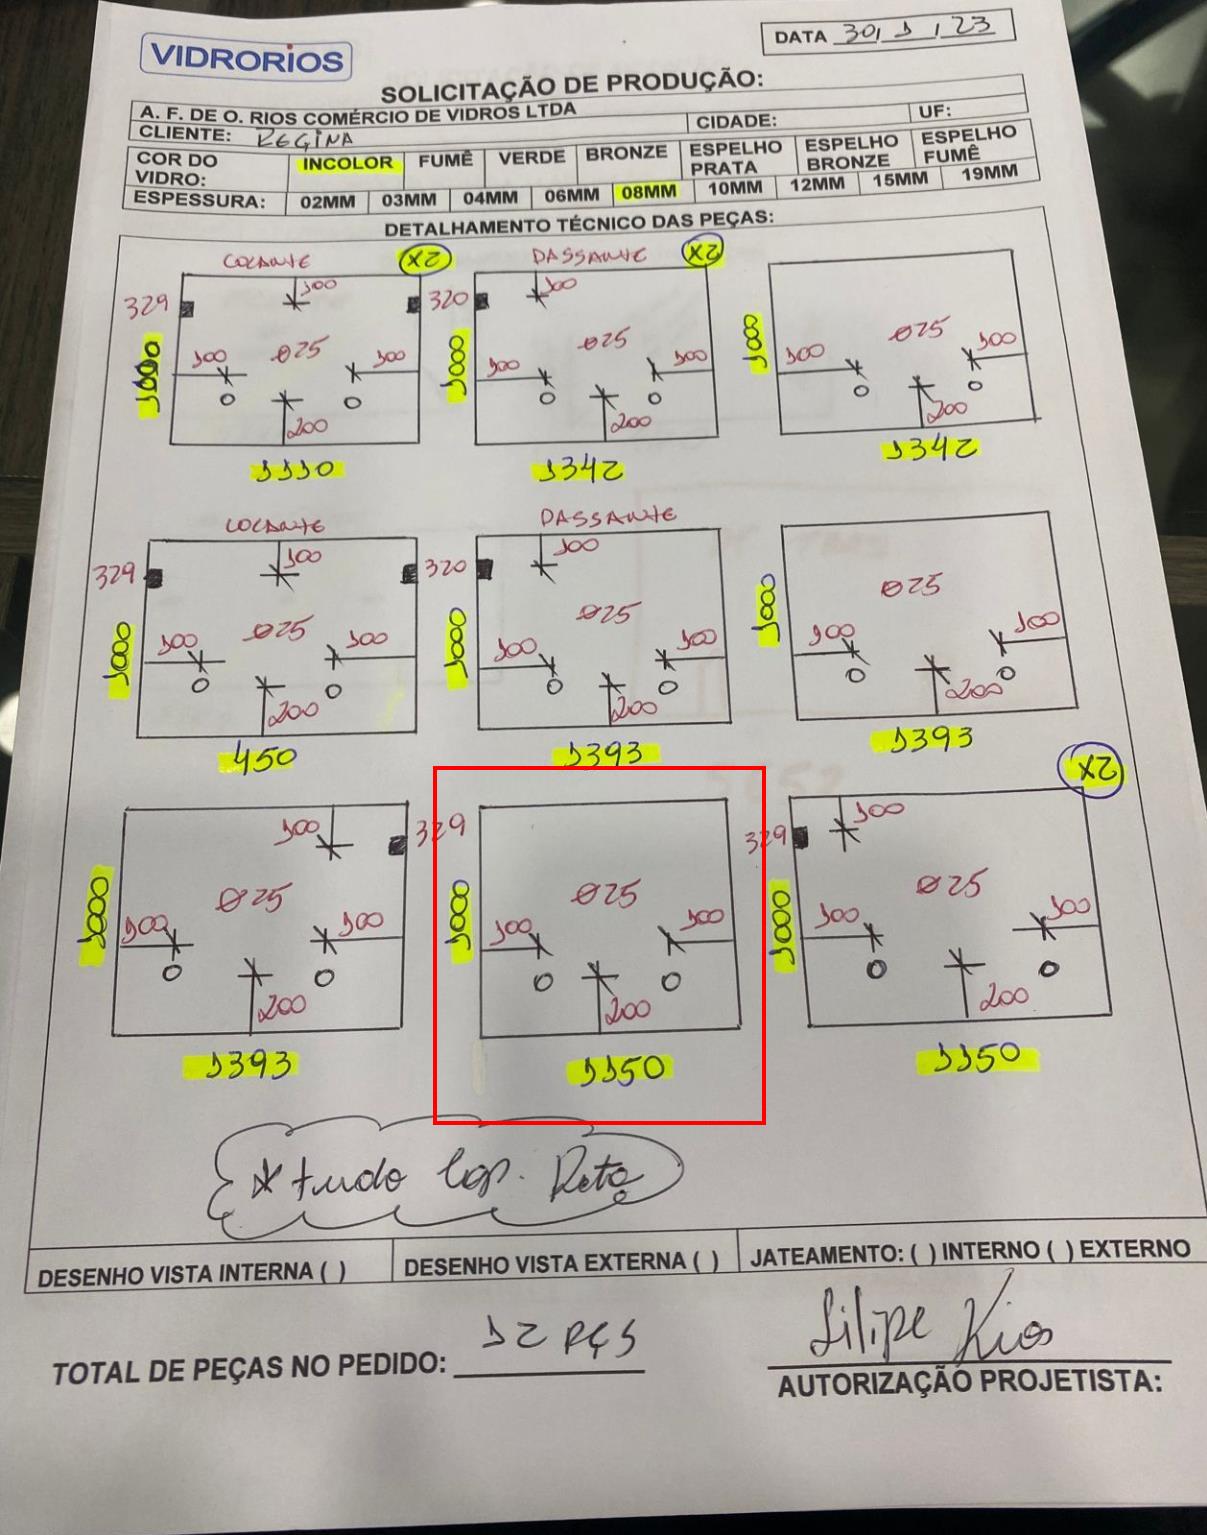 VIDRORIOS
DATA 30, 1, 23
SOLICITAÇÃO DE PRODUÇÃO:
A. F. DE O. RIOS COMÉRCIO DE VIDROS LTDA
CLIENTE: REGINA CIDADE: UF:
COR DO VIDRO: INCOLOR FUMÊ VERDE BRONZE ESPELHO PRATA ESPELHO BRONZE ESPELHO FUMÊ
ESPESSURA: 02MM 03MM 04MM 06MM 08MM 10MM 12MM 15MM 19MM
DETALHAMENTO TÉCNICO DAS PEÇAS:
COLANTE 2X PASSANTE 2X
329 100 320 100
1000 100 Ø25 100 1000 100 Ø25 100 1000 100 Ø25 100
200 200 200
1110 1342 1342
COLANTE PASSANTE
329 100 320 100
1000 100 Ø25 100 1000 100 Ø25 100 1000 100 Ø25 100
200 200 200
450 1393 1393
2X
100 329 329 100
1000 100 Ø25 100 1000 100 Ø25 100 1000 100 Ø25 100
200 200 200
1393 1150 1150
* tudo Lap. Reto
DESENHO VISTA INTERNA ( ) DESENHO VISTA EXTERNA ( ) JATEAMENTO: ( ) INTERNO ( ) EXTERNO
TOTAL DE PEÇAS NO PEDIDO: 12 PÇS
Filipe Rios
AUTORIZAÇÃO PROJETISTA: